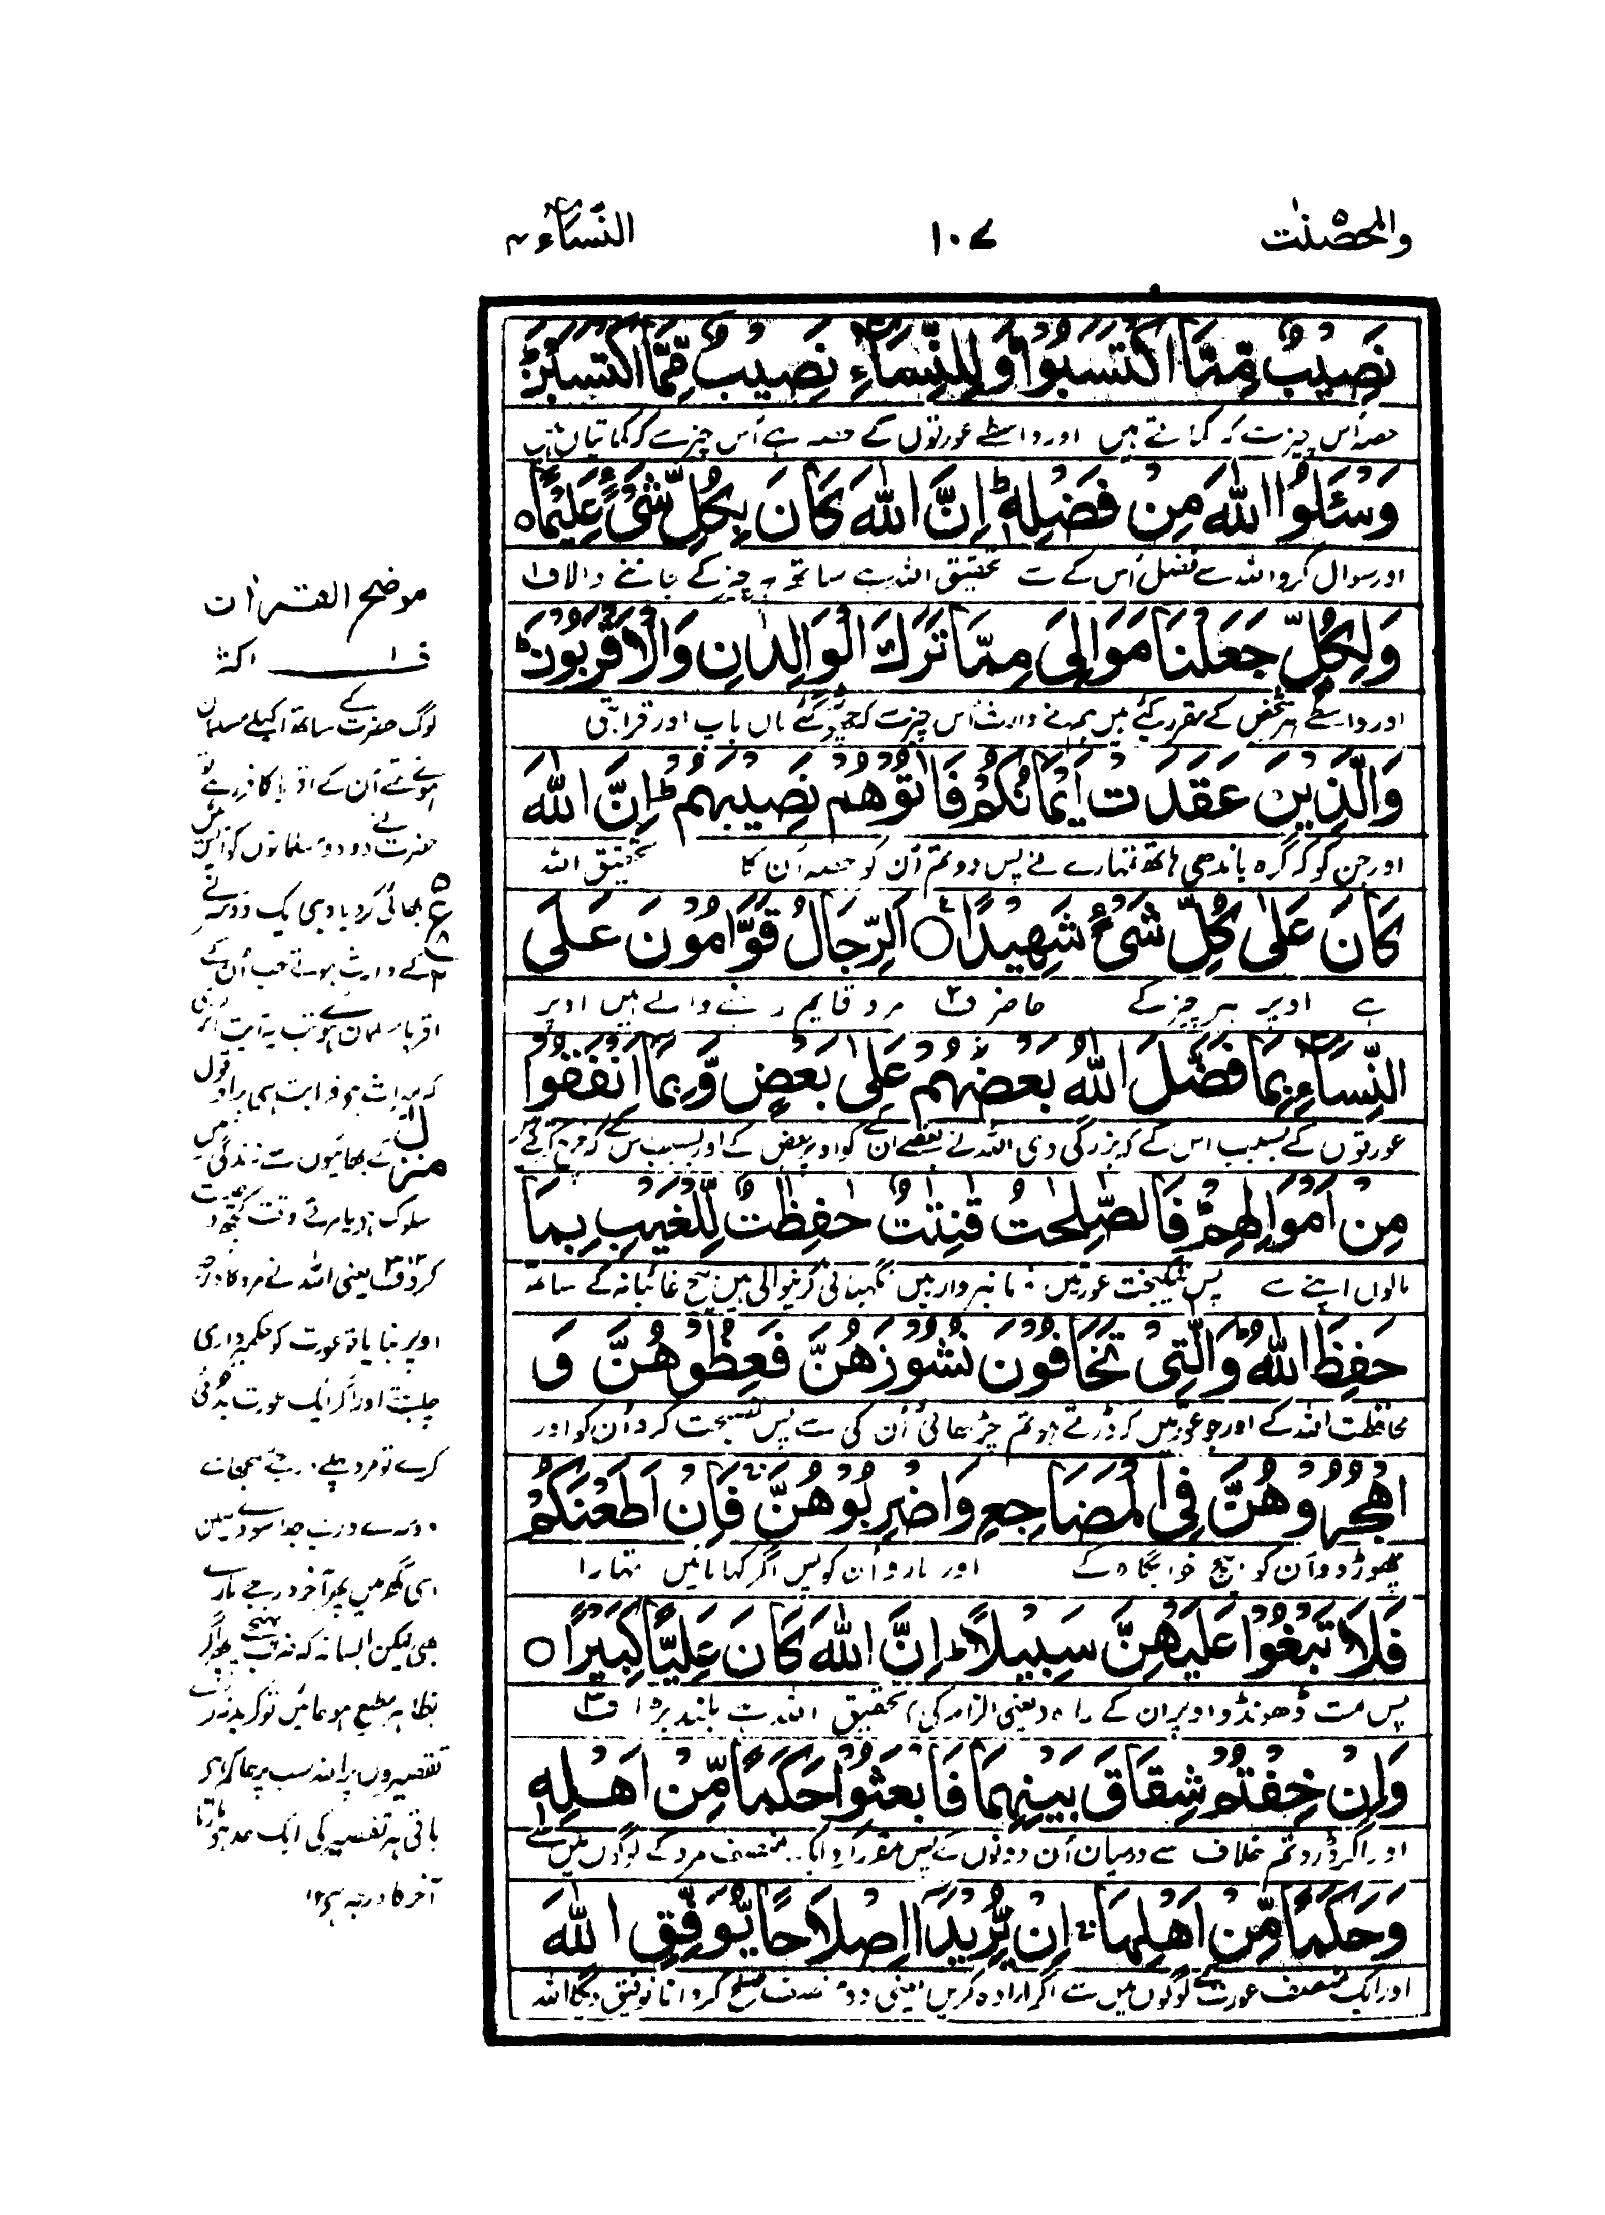 والمحصنٰت
١٠٧
النسآء ٤
نَصِيْبٌ مِّمَّا اكْتَسَبُوْا وَلِلنِّسَآءِ نَصِيْبٌ مِّمَّا اكْتَسَبْنَ ؕ
حصہ اُس چیز سے کہ کماتے ہیں اور واسطے عورتوں کے حصہ ہے اُس چیز سے کہ کماتیاں ہیں
وَسْـَٔلُوا اللّٰهَ مِنْ فَضْلِهٖ ؕ اِنَّ اللّٰهَ كَانَ بِكُلِّ شَيْءٍ عَلِيْمًا ○
اور سوال کرو اللہ سے فضل اُس کے سے تحقیق اللہ ہے ساتھ ہر چیز کے جاننے والا ف۱
وَلِكُلٍّ جَعَلْنَا مَوَالِيَ مِمَّا تَرَكَ الْوَالِدٰنِ وَالْاَقْرَبُوْنَ ؕ
اور واسطے ہر شخص کے مقرر کئے ہیں ہم نے وارث اُس چیز سے کہ چھوڑ گئے ماں باپ اور قرابتی
وَالَّذِيْنَ عَقَدَتْ اَيْمَانُكُمْ فَاٰتُوْهُمْ نَصِيْبَهُمْ ؕ اِنَّ اللّٰهَ
اور جن کو کہ گرہ باندھی ہاتھ تمہارے نے پس دو تم اُن کو حصہ اُن کا تحقیق اللہ
كَانَ عَلٰى كُلِّ شَيْءٍ شَهِيْدًا ○ اَلرِّجَالُ قَوَّامُوْنَ عَلَى
ہے اوپر ہر چیز کے حاضر ف۲ مرد قایم رہنے والے ہیں اوپر
النِّسَآءِ بِمَا فَضَّلَ اللّٰهُ بَعْضَهُمْ عَلٰى بَعْضٍ وَّبِمَآ اَنْفَقُوْا
عورتوں کے بسبب اس کے کہ بزرگی دی اللہ نے بعضے ان کے کو اوپر بعض کے اور بسبب اس کے کہ خرچ کرتے ہیں
مِنْ اَمْوَالِهِمْ ؕ فَالصّٰلِحٰتُ قٰنِتٰتٌ حٰفِظٰتٌ لِّلْغَيْبِ بِمَا
مالوں اپنے سے پس نیکبخت عورتیں فرمانبردار ہیں نگہبانی کرنیوالی ہیں بیچ غائبانہ کے ساتھ
حَفِظَ اللّٰهُ ؕ وَالّٰتِيْ تَخَافُوْنَ نُشُوْزَهُنَّ فَعِظُوْهُنَّ وَ
محافظت اللہ کے اور جو عورتیں کہ ڈرتے ہو تم چڑھائی اُن کی سے پس نصیحت کرو اُن کو اور
اهْجُرُوْهُنَّ فِي الْمَضَاجِعِ وَاضْرِبُوْهُنَّ ۚ فَاِنْ اَطَعْنَكُمْ
چھوڑ دو اُن کو بیچ خوابگاہ کے اور مارو اُن کو پس اگر کہا مانیں تمہارا
فَلَا تَبْغُوْا عَلَيْهِنَّ سَبِيْلًا ؕ اِنَّ اللّٰهَ كَانَ عَلِيًّا كَبِيْرًا ○
پس مت ڈھونڈو اوپر ان کے راہ (یعنی الزام کی) تحقیق اللہ ہے بلند بڑا ف۳
وَاِنْ خِفْتُمْ شِقَاقَ بَيْنِهِمَا فَابْعَثُوْا حَكَمًا مِّنْ اَهْلِهٖ
اور اگر ڈرو تم خلاف سے درمیان اُن دونوں کے پس مقرر کرو ایک منصف مرد کے لوگوں میں سے
وَحَكَمًا مِّنْ اَهْلِهَا ۚ اِنْ يُّرِيْدَآ اِصْلَاحًا يُّوَفِّقِ اللّٰهُ
اور ایک منصف عورت کے لوگوں میں سے اگر ارادہ کریں یعنی دو منصف صلح کروانا توفیق دیگا اللہ
موضح القرآن
ف۱ اکثر
لوگ حضرت کے ساتھ اکیلے مسلمان
ہوئے تھے اُن کے اقربا کافر رہے تو
حضرت نے دو دو مسلمانوں کو آپس میں
بھائی کر دیا وہی ایک دوسرے
کے وارث ہوتے جب اُن کے
اقربا مسلمان ہوئے تب یہ آیت اتری
کہ میراث ہے قرابت ہی پر اور قول
کے بھائیوں سے زندگی میں
سلوک ہے یا مرتے وقت کچھ وصیت
کر دو ف۲ یعنی اللہ نے مرد کا درجہ
اوپر بنایا تو عورت کو حکمبرداری
چاہئے اور اگر ایک عورت بدخوئی
کرے تو مرد پہلے درجے سمجھائے
دوسرے درجے جدا سووے لیکن
اسی گھر میں پھر آخر درجے مارے
بھی لیکن ایسا نہ کہ ضرب پہنچے پھر اگر
بظاہر مطیع ہو جائیں تو کرید نہ کرے
تقصیروں پر اللہ سب پر حاکم ہے
باقی ہر تقصیر کی ایک حد ہے مارنا
آخر کا درجہ ہے ۱۲
منزل
ع